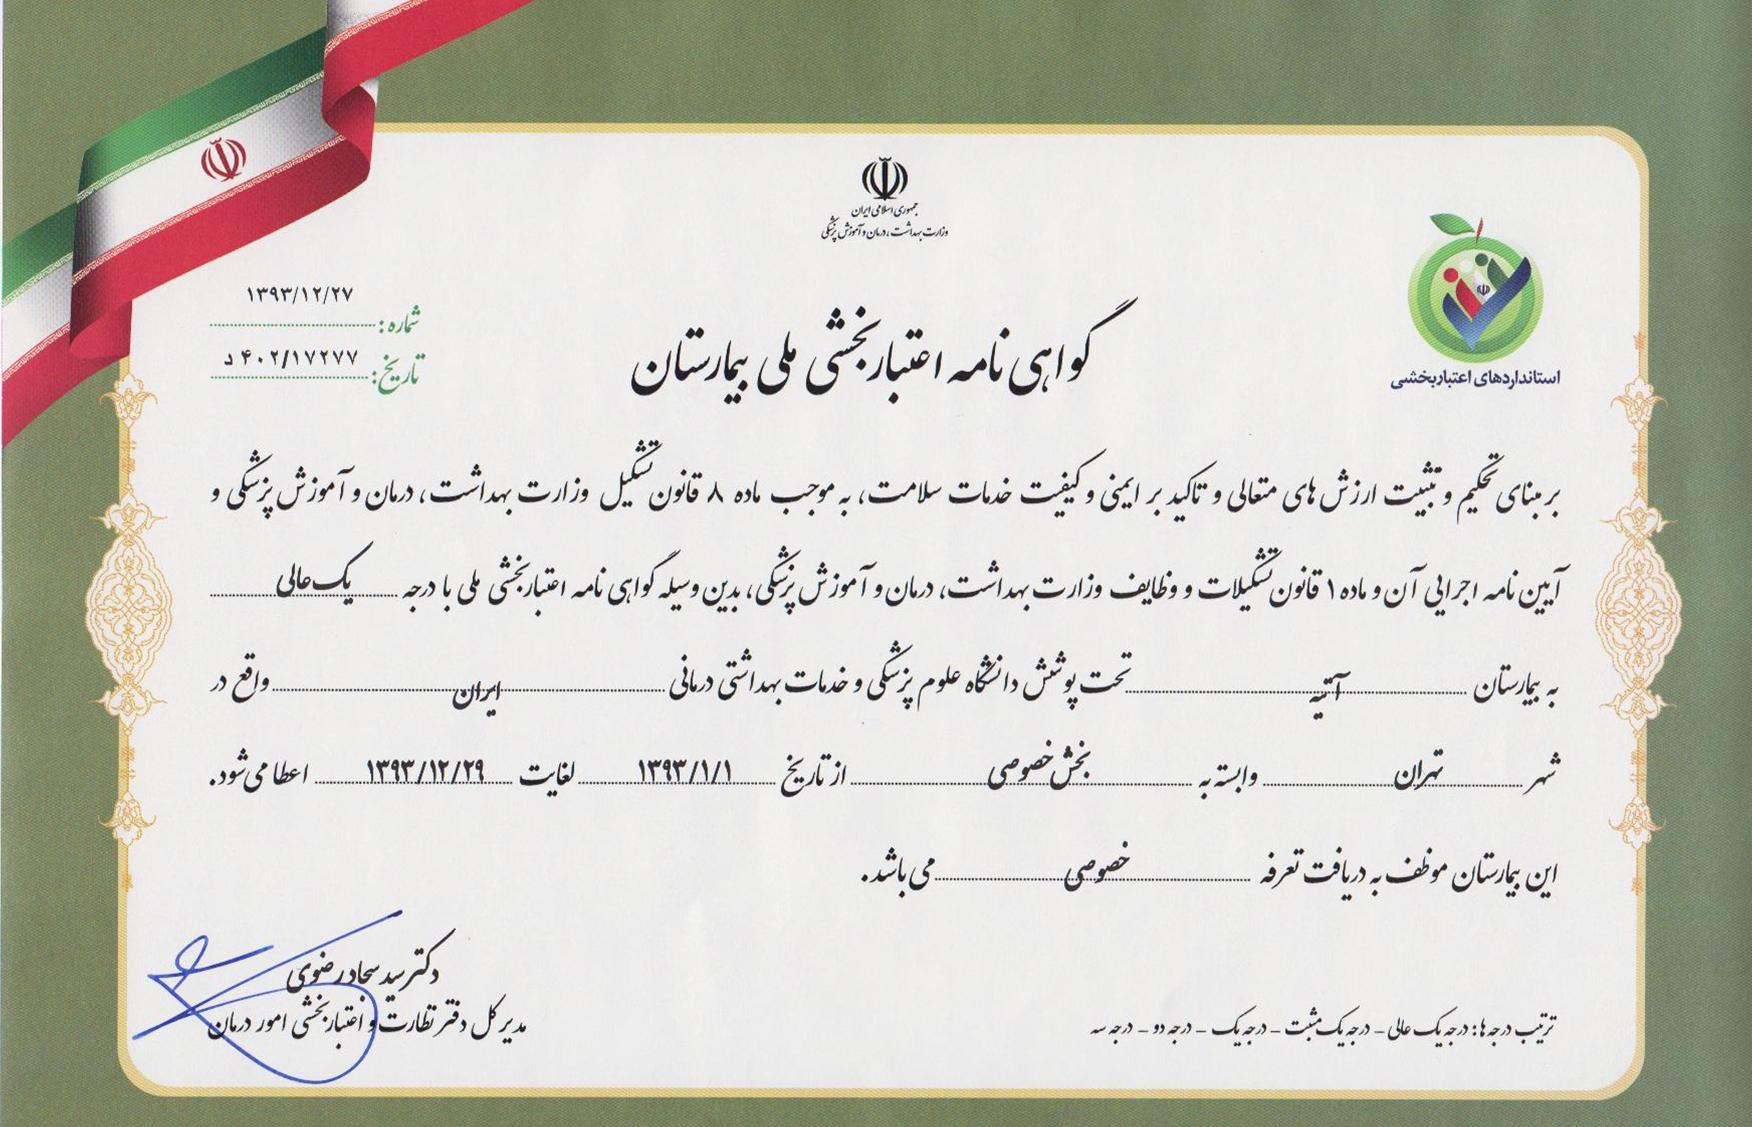 جمهوری اسلامی ایران
وزارت بهداشت، درمان و آموزش پزشکی
استانداردهای اعتباربخشی
۱۳۹۳/۱۲/۲۷
شماره:
۴۰۲/۱۷۲۷۷ د
تاریخ:
گواهی نامه اعتباربخشی ملی بیمارستان
بر مبنای تحکیم و تثبیت ارزش های متعالی و تاکید بر ایمنی و کیفیت خدمات سلامت، به موجب ماده ۸ قانون تشکیل وزارت بهداشت، درمان و آموزش پزشکی و
آیین نامه اجرایی آن و ماده ۱ قانون تشکیلات و وظایف وزارت بهداشت، درمان و آموزش پزشکی، بدین وسیله گواهی نامه اعتباربخشی ملی با درجه یک عالی
به بیمارستان آتیه تحت پوشش دانشگاه علوم پزشکی و خدمات بهداشتی درمانی ایران واقع در
شهر تهران وابسته به بخش خصوصی از تاریخ ۱۳۹۳/۱/۱ لغایت ۱۳۹۳/۱۲/۲۹ اعطا می شود.
این بیمارستان موظف به دریافت تعرفه خصوصی می باشد.
دکتر سید سجاد رضوی
مدیر کل دفتر نظارت و اعتباربخشی امور درمان
ترتیب درجه ها: درجه یک عالی - درجه یک مثبت - درجه یک - درجه دو - درجه سه